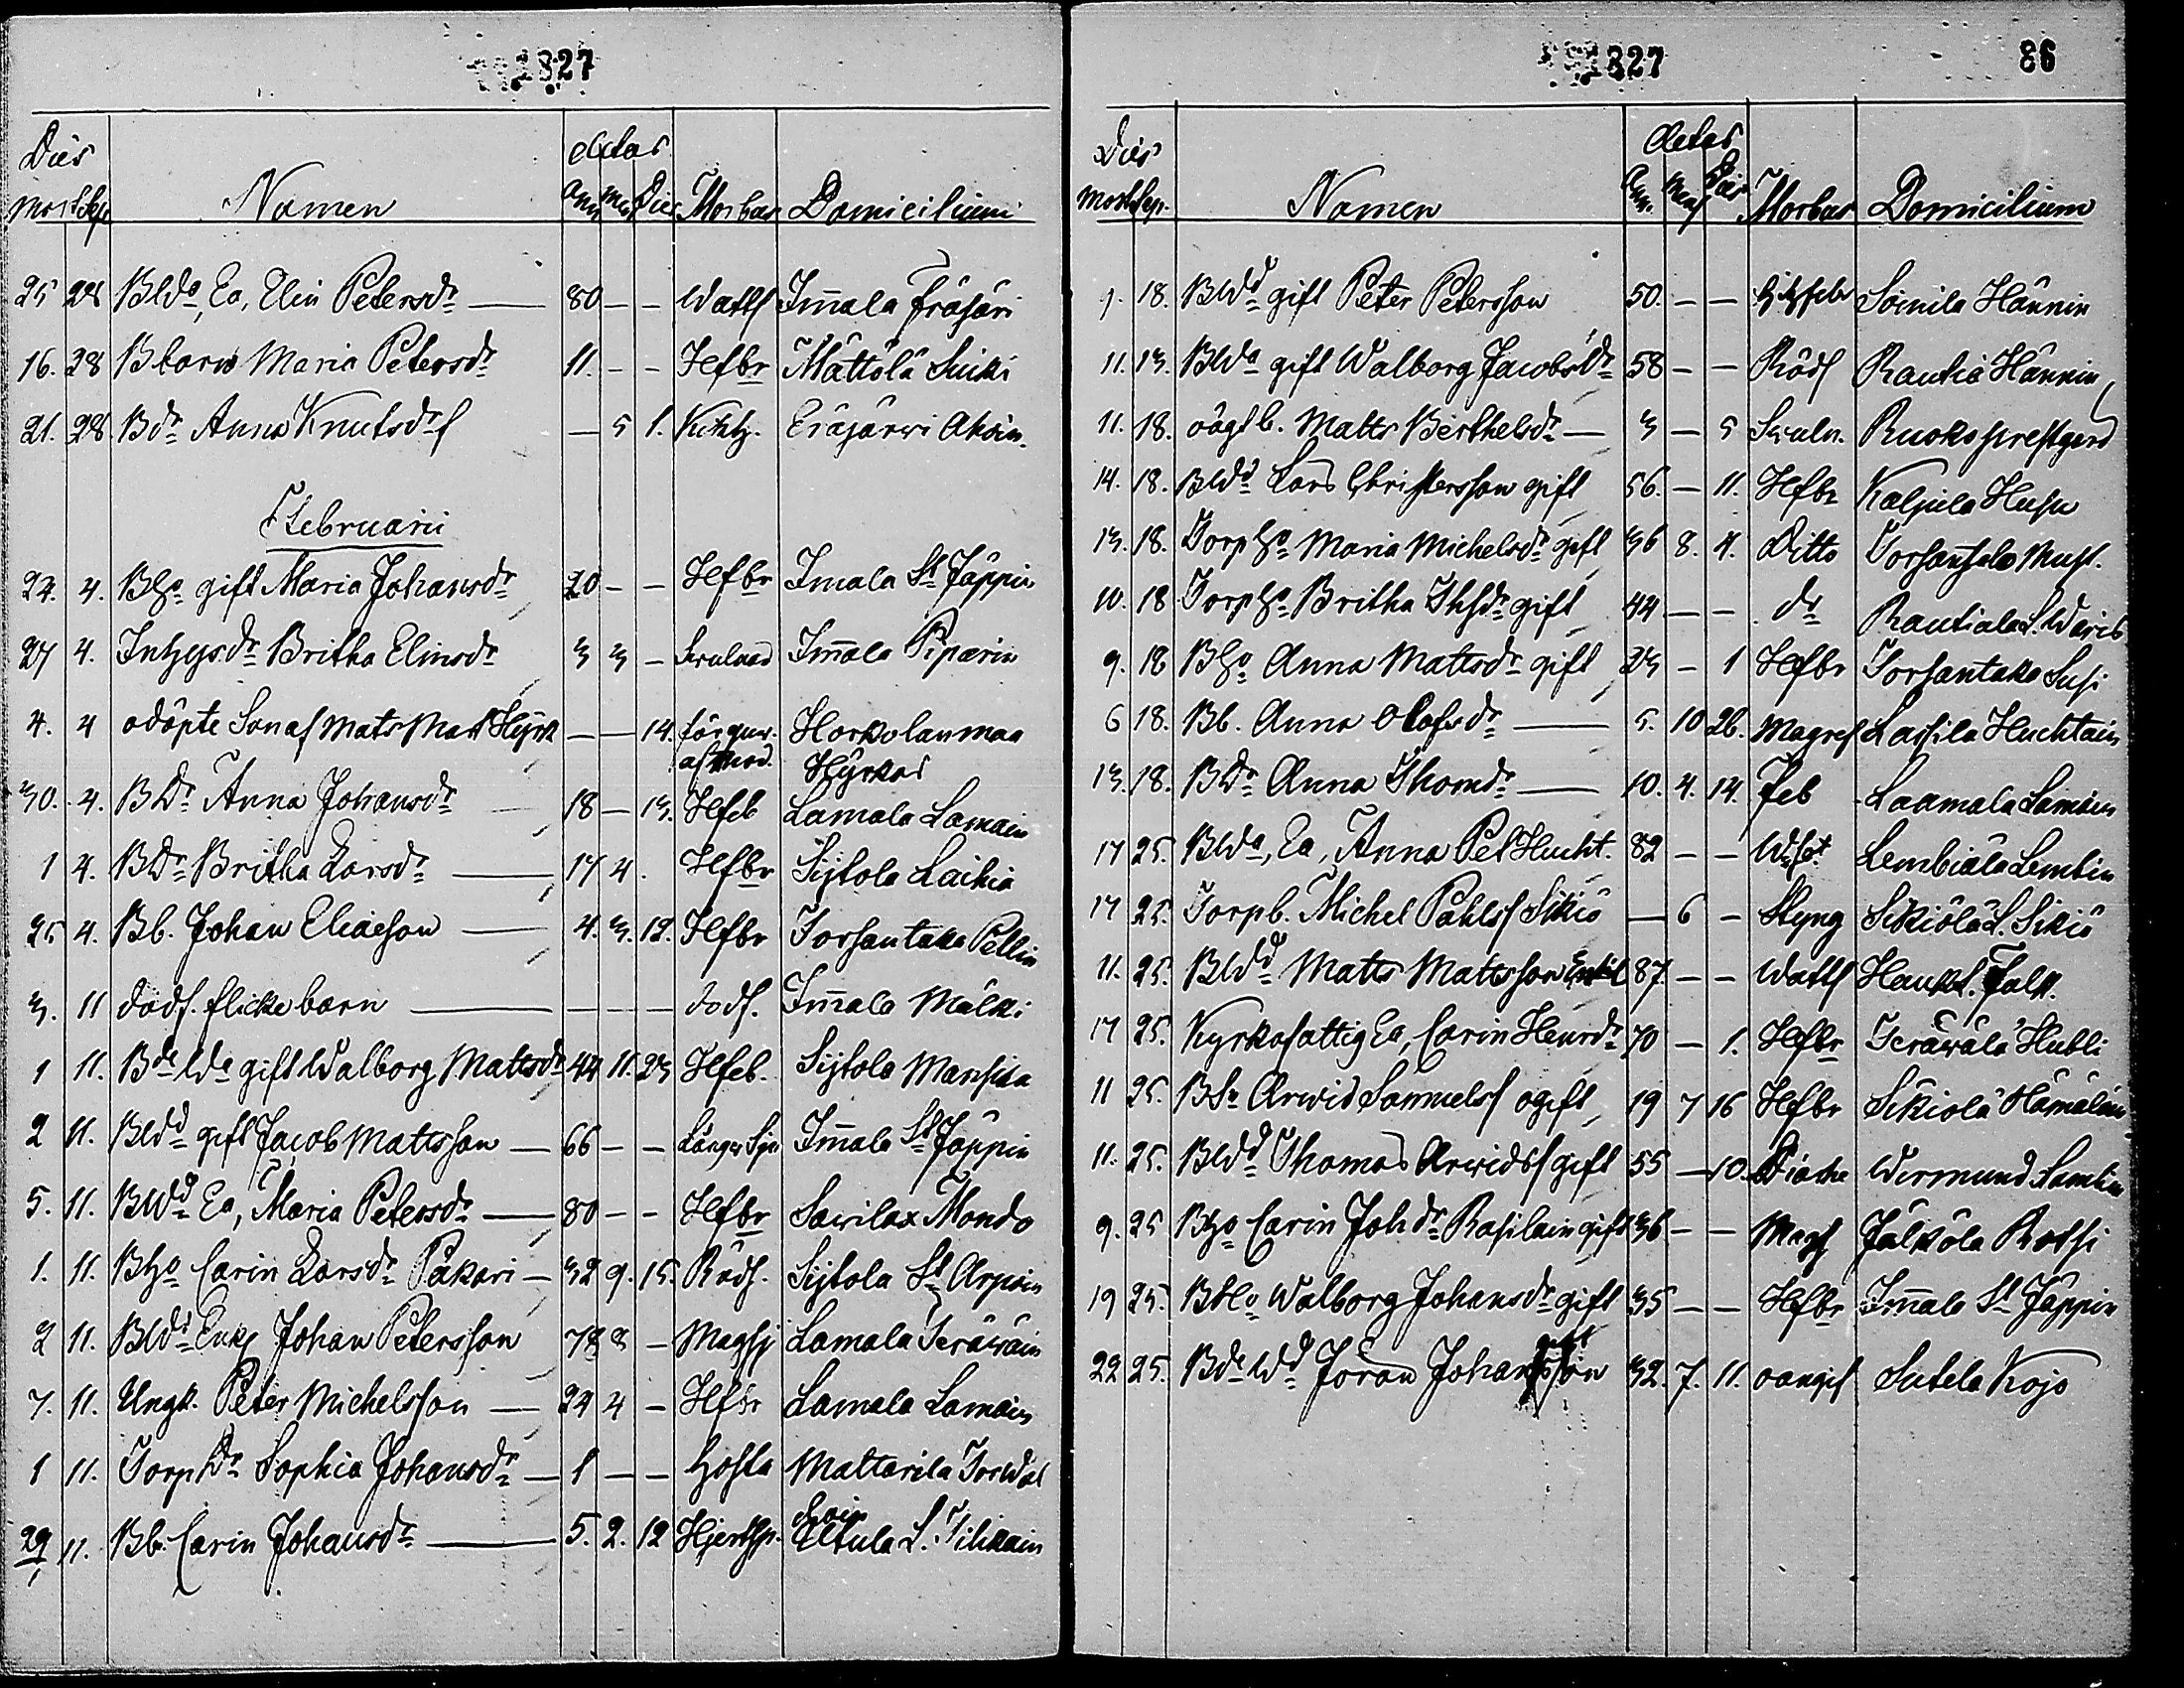 1827
Dies Aetas
Mort Sep Namen Ann Mens Dies Morbus Domicilium
25 28 BWa, Ea, Elin Petersdr — 80 — — Watts Im̄ala Eräjäri
16. 28 Bbarn Maria Petersdr 11. — — Hfbr Mattola Suiki
21. 28 Bdr Anna Knutsdr — 5 1. Kikh. Eräjärvi
Februarii
22. 4. BHo gift Maria Johansdr 20 — — Hfbr Imala St Jäppin
27 4. Inhysdr Britha Elinsdr 3 3 — Im̄ala Piparin
4. 4 odöpte Sonaf Mats Matts Hyrk — — 14. Horkolanmaa
Hyrkas
30. 4. BDr Anna Johansdr 18 — 13. Hfeb Lamala Lamain
1 4. BDr Britha Larsdr — 17 4. Hfbr Sijtola Laikia
25 4. Bb. Johan Eliaeson — 4. 3. 12. Hfbr Torsantaka Pellin
3. 11 dödf. flickebarn — — — — dödf. Im̄ala Mälki
1 11. Bde Wa gift Walborg Mattsdr 44 11. 23 Hfeb. Sijtola Mansika
2 11. BWd gift Jacob Mattsson — 66 — — Im̄ala St Jäppin
5. 11. BWd Ea, Maria Petersdr — 80 — — Hfbr Sawilax Mondo
1. 11. BHo Carin Larsdr Pakari — 32 9. 15. Rödf. Sijtola St Arpoin
2 11. BWd Enkl Johan Petersson 78 8 — Magsj Lamala Teräwäin
7. 11. Ungk. Peter Michelsson — 24 4 — Hfbr Lamala Lamain
1 11. Torp Dr Sophia Johansdr — 1 — — Hosta Mattarila
29 11. Bb. Carin Johansdr — 5. 2. 12 Eltula L. Tilikain
1827 86
Dies Aetas
Mort Sep. Namen Ann. Mens Dies Morbus Domicilium
9. 18. BWd gift Peter Petersson 50. — — Soinila Hännin
11. 13. BWa gift Walborg Jacobsdr 58 — — Rödf Rautia Hännin
11. 18. oägt b. Matts Berthelsdr — 3 — 5 Ruoko prestgård
14. 18. BWd Lars Christersson gift 56. — 11. Hfbr Kalpiela Husu
13. 18. Torp Ho Maria Michelsdr gift 36 8. 4. Ditto
10. 18 Torp Ho Britha Thsdr gift 44 — — do Rautiala
9. 18 BHo Anna Mattsdr gift 23 — 1 Hfbr Torsantaka Susi
6 18. Bb. Anna Olofsdr — 5. 10 26. Magref Lassila Huchtain
13. 18. BDr Anna Thomdr — 10. 4. 14. Feb Laamala Lamain
17 25. BWa, Ea, Anna Pet Hucht. 82 — — Lembiäla Lembin
17 25. Torpb. Michel Pahlsf Sikiö — 6 — Styng Sikiölä L. Sikiö
11. 25. BWd Matts Mattsson Enkl 87 — — Watts
17 25. Kyrkofattig Ea, Carin Henrdr 70 — 1. Hfbr Teräwälä Hubli
11 25. BSr Arwid Samuelsf ogift 19 7 16 Hfbr Sikiola Hämäläin
11. 25. BWd Thomas Arwidsf gift 55 — 10. Wermund
9. 25 BHo Carin Johdr Rasilain gift 36 — — Jälkölä
19 25. BHo Walborg Johansdr gift 35 — — Hfbr Im̄ala St Jäppin
22 25. Bde Wd Jöran Johansson gift 32. 7. 11. Sutela Kojo